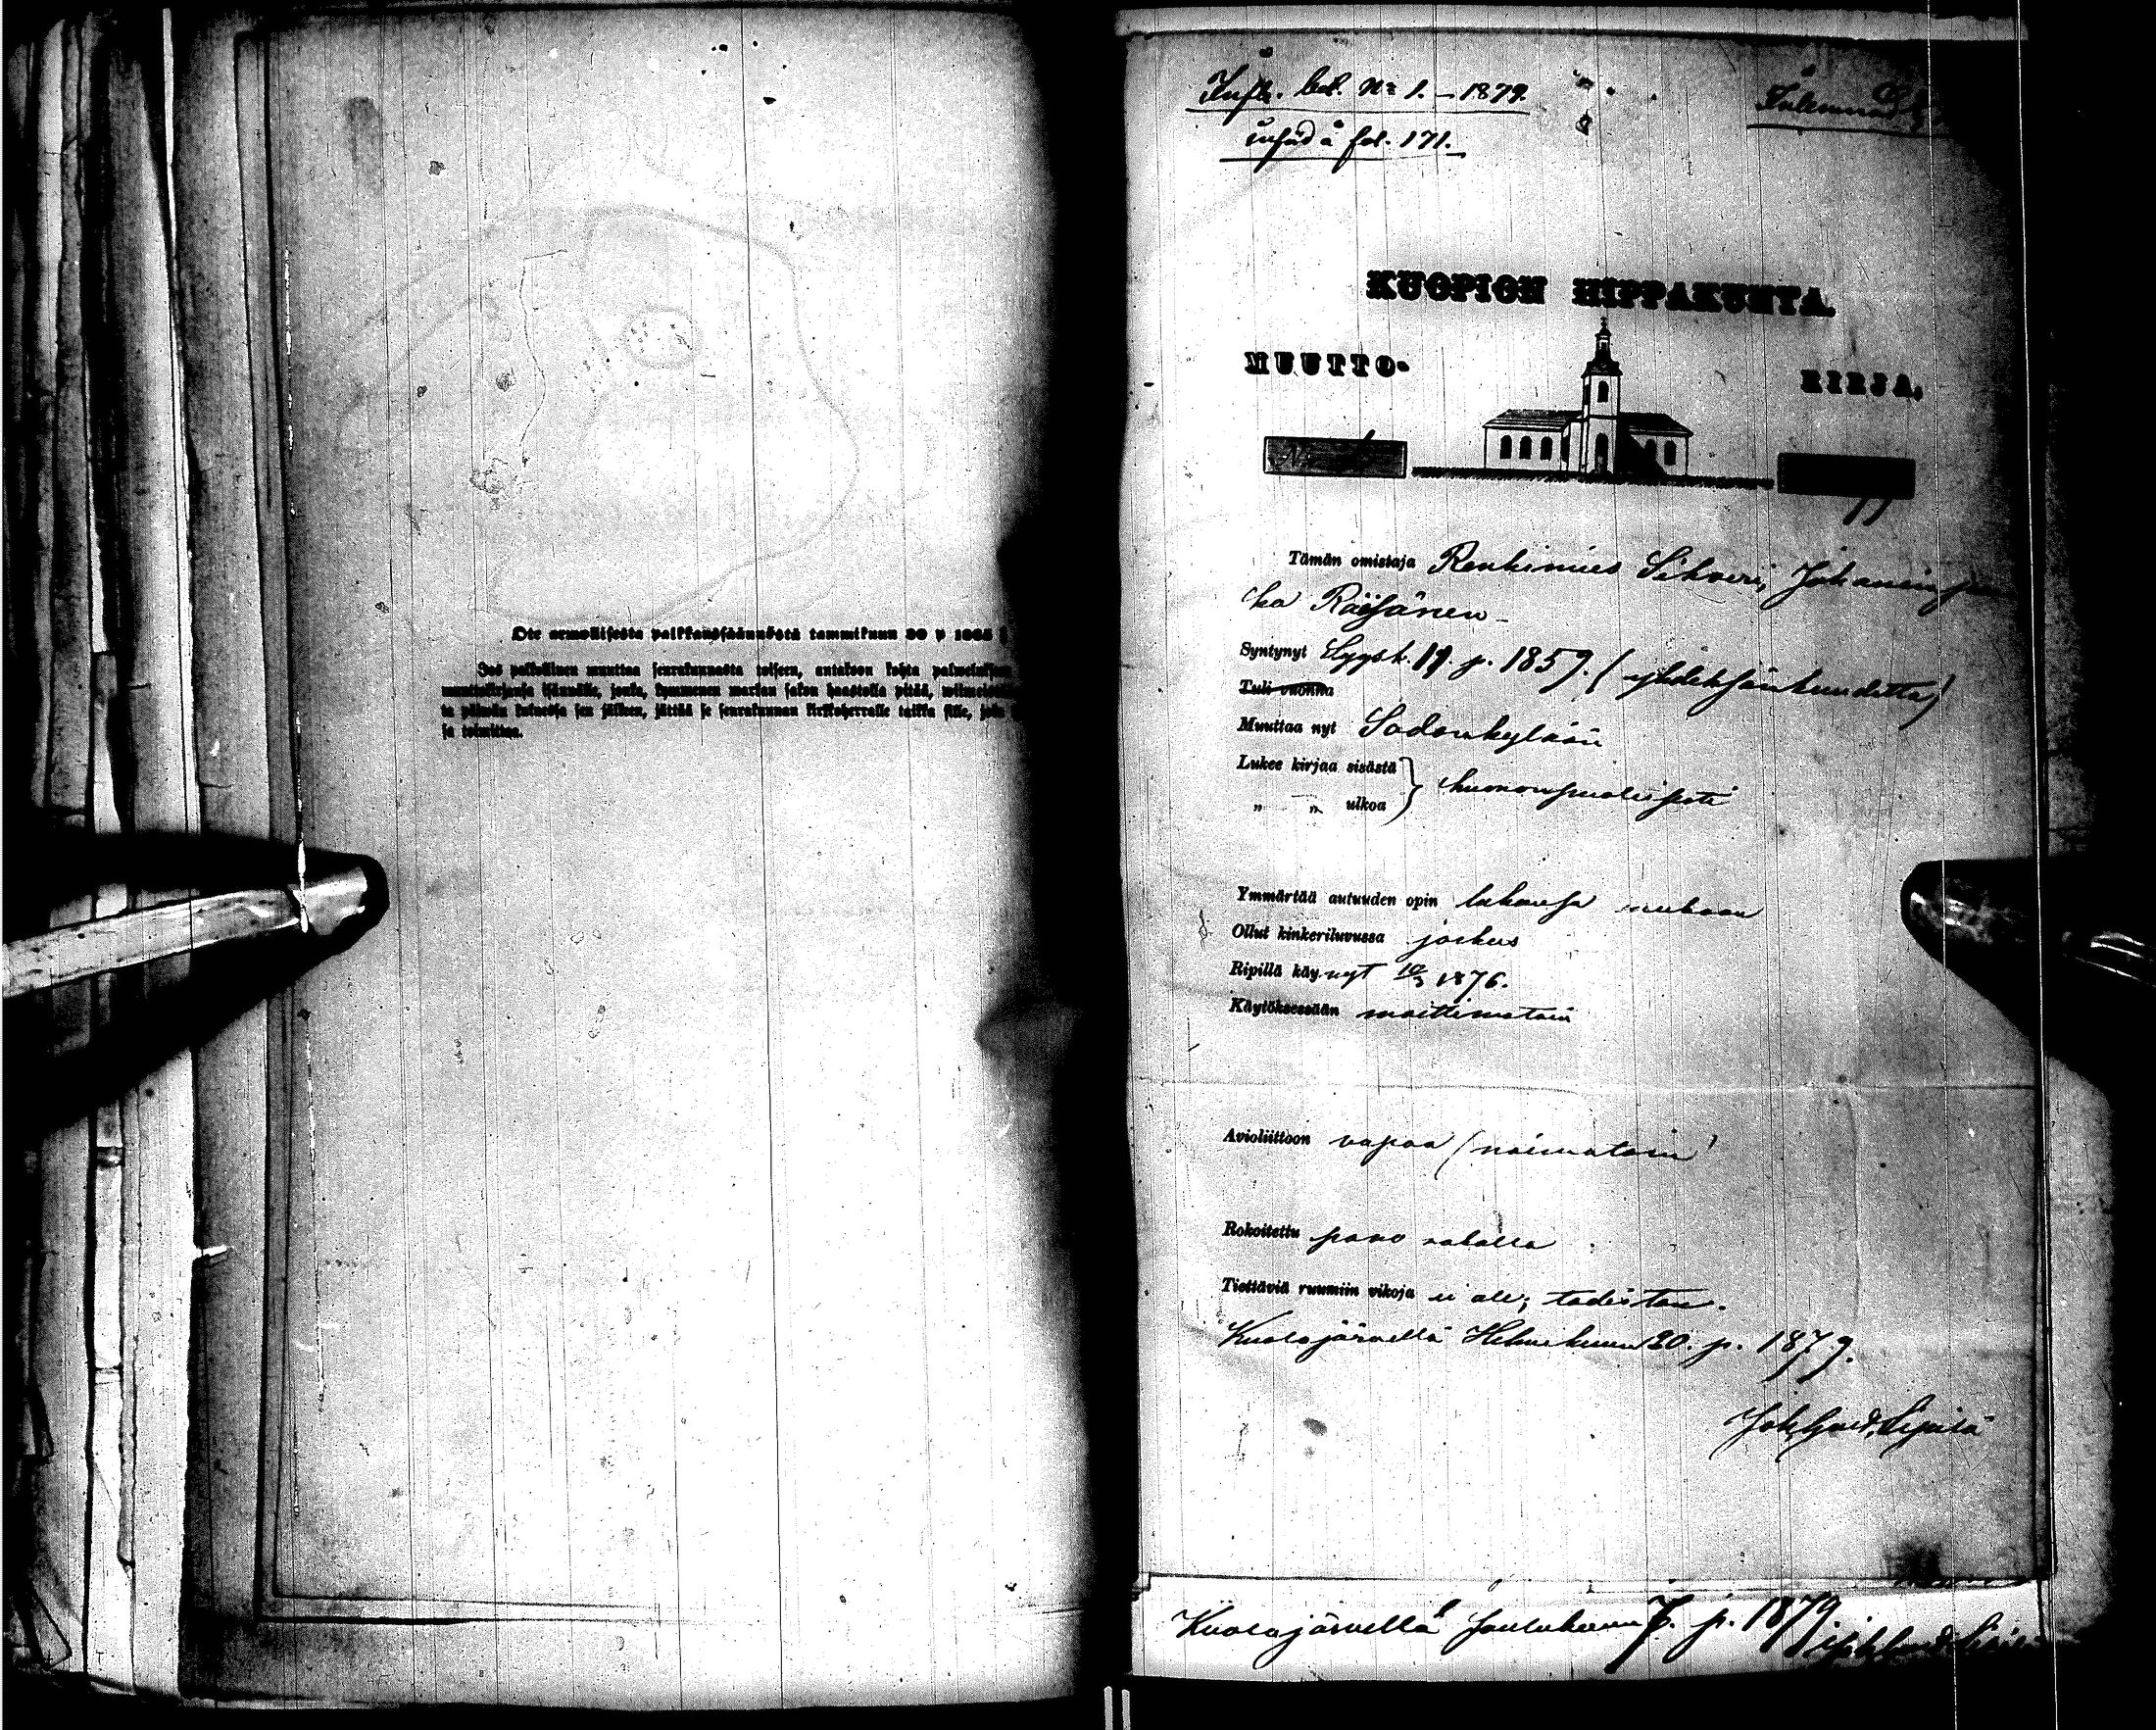 Ote armollisesta palkkaussäännöstä tammikuun 30 p 1865
Jos palkollinen muuttaa seurakunnasta toiseen, antakoon kohta palwelukseen
muuttokirjansa isännälle, jonka, kymmenen markan sakon haastolla pitää,
ta päiwän kuluessa sen jälkeen, jättää se seurakunnan kirkkoherralle taikka sille, joka
ja toimittaa.
Infl. bet. No 1. - 1879.
införd å fol. 171.
KUOPION HIPPAKUNTA.
MUUTTO- KIRJA.
No
Tämän omistaja Renkimies Sihveri, Johanin poi
ka Räisänen
Syntynyt Syysk. 19. p. 1859. (yhdeksänkuudetta)
Tuli vuonna
Muuttaa nyt Sodankylään
Lukee kirjaa sisästä } kunnonpuoleisesti
„ „ ulkoa
Ymmärtää autuuden opin lukunsa mukaan
Ollut kinkeriluvussa joskus
Ripillä käynyt 19/3 1876.
Käytöksessään moittimatoin
Avioliittoon vapaa (naimatoin)
Rokoitettu pano rokolla
Tiettäviä ruumiin vikoja ei ole; todistan.
Kuolajärvellä Helmikuun 20. p. 1879.
Kuolajärvellä Joulukuun 7. p. 1879.